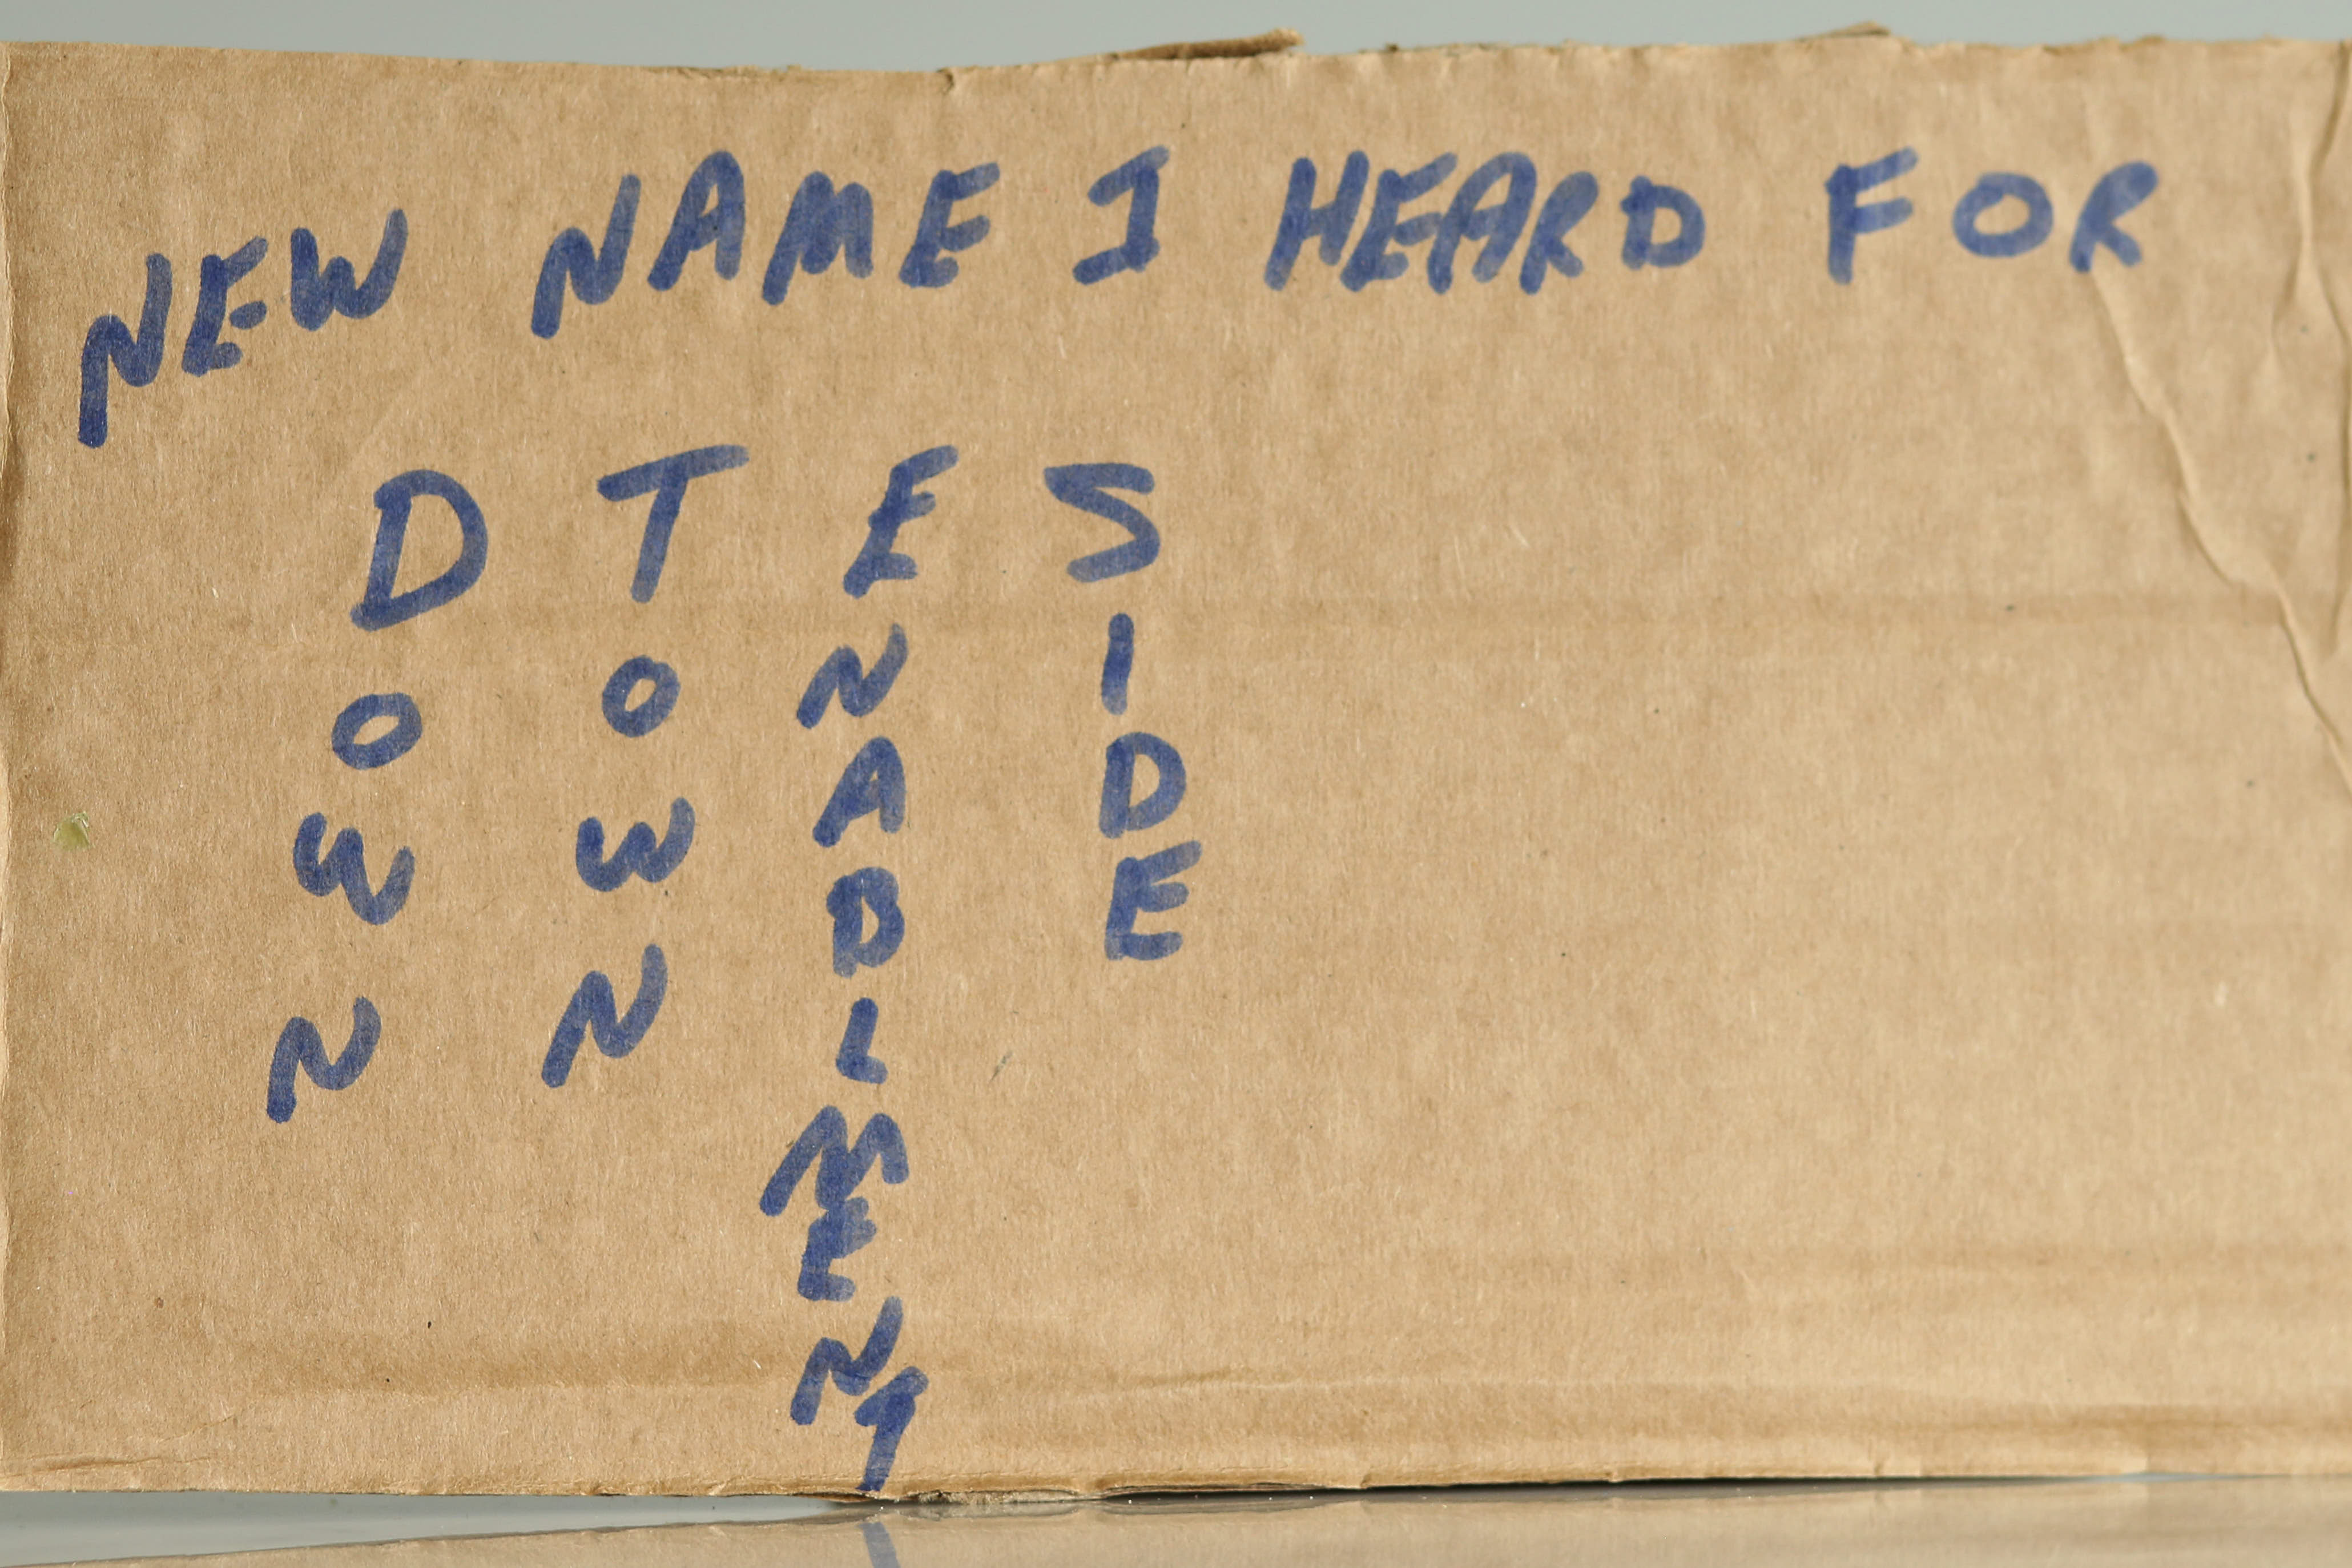 NEW NAME I HEARD FOR
DOWN
TOWN
ENABLMENT
SIDE